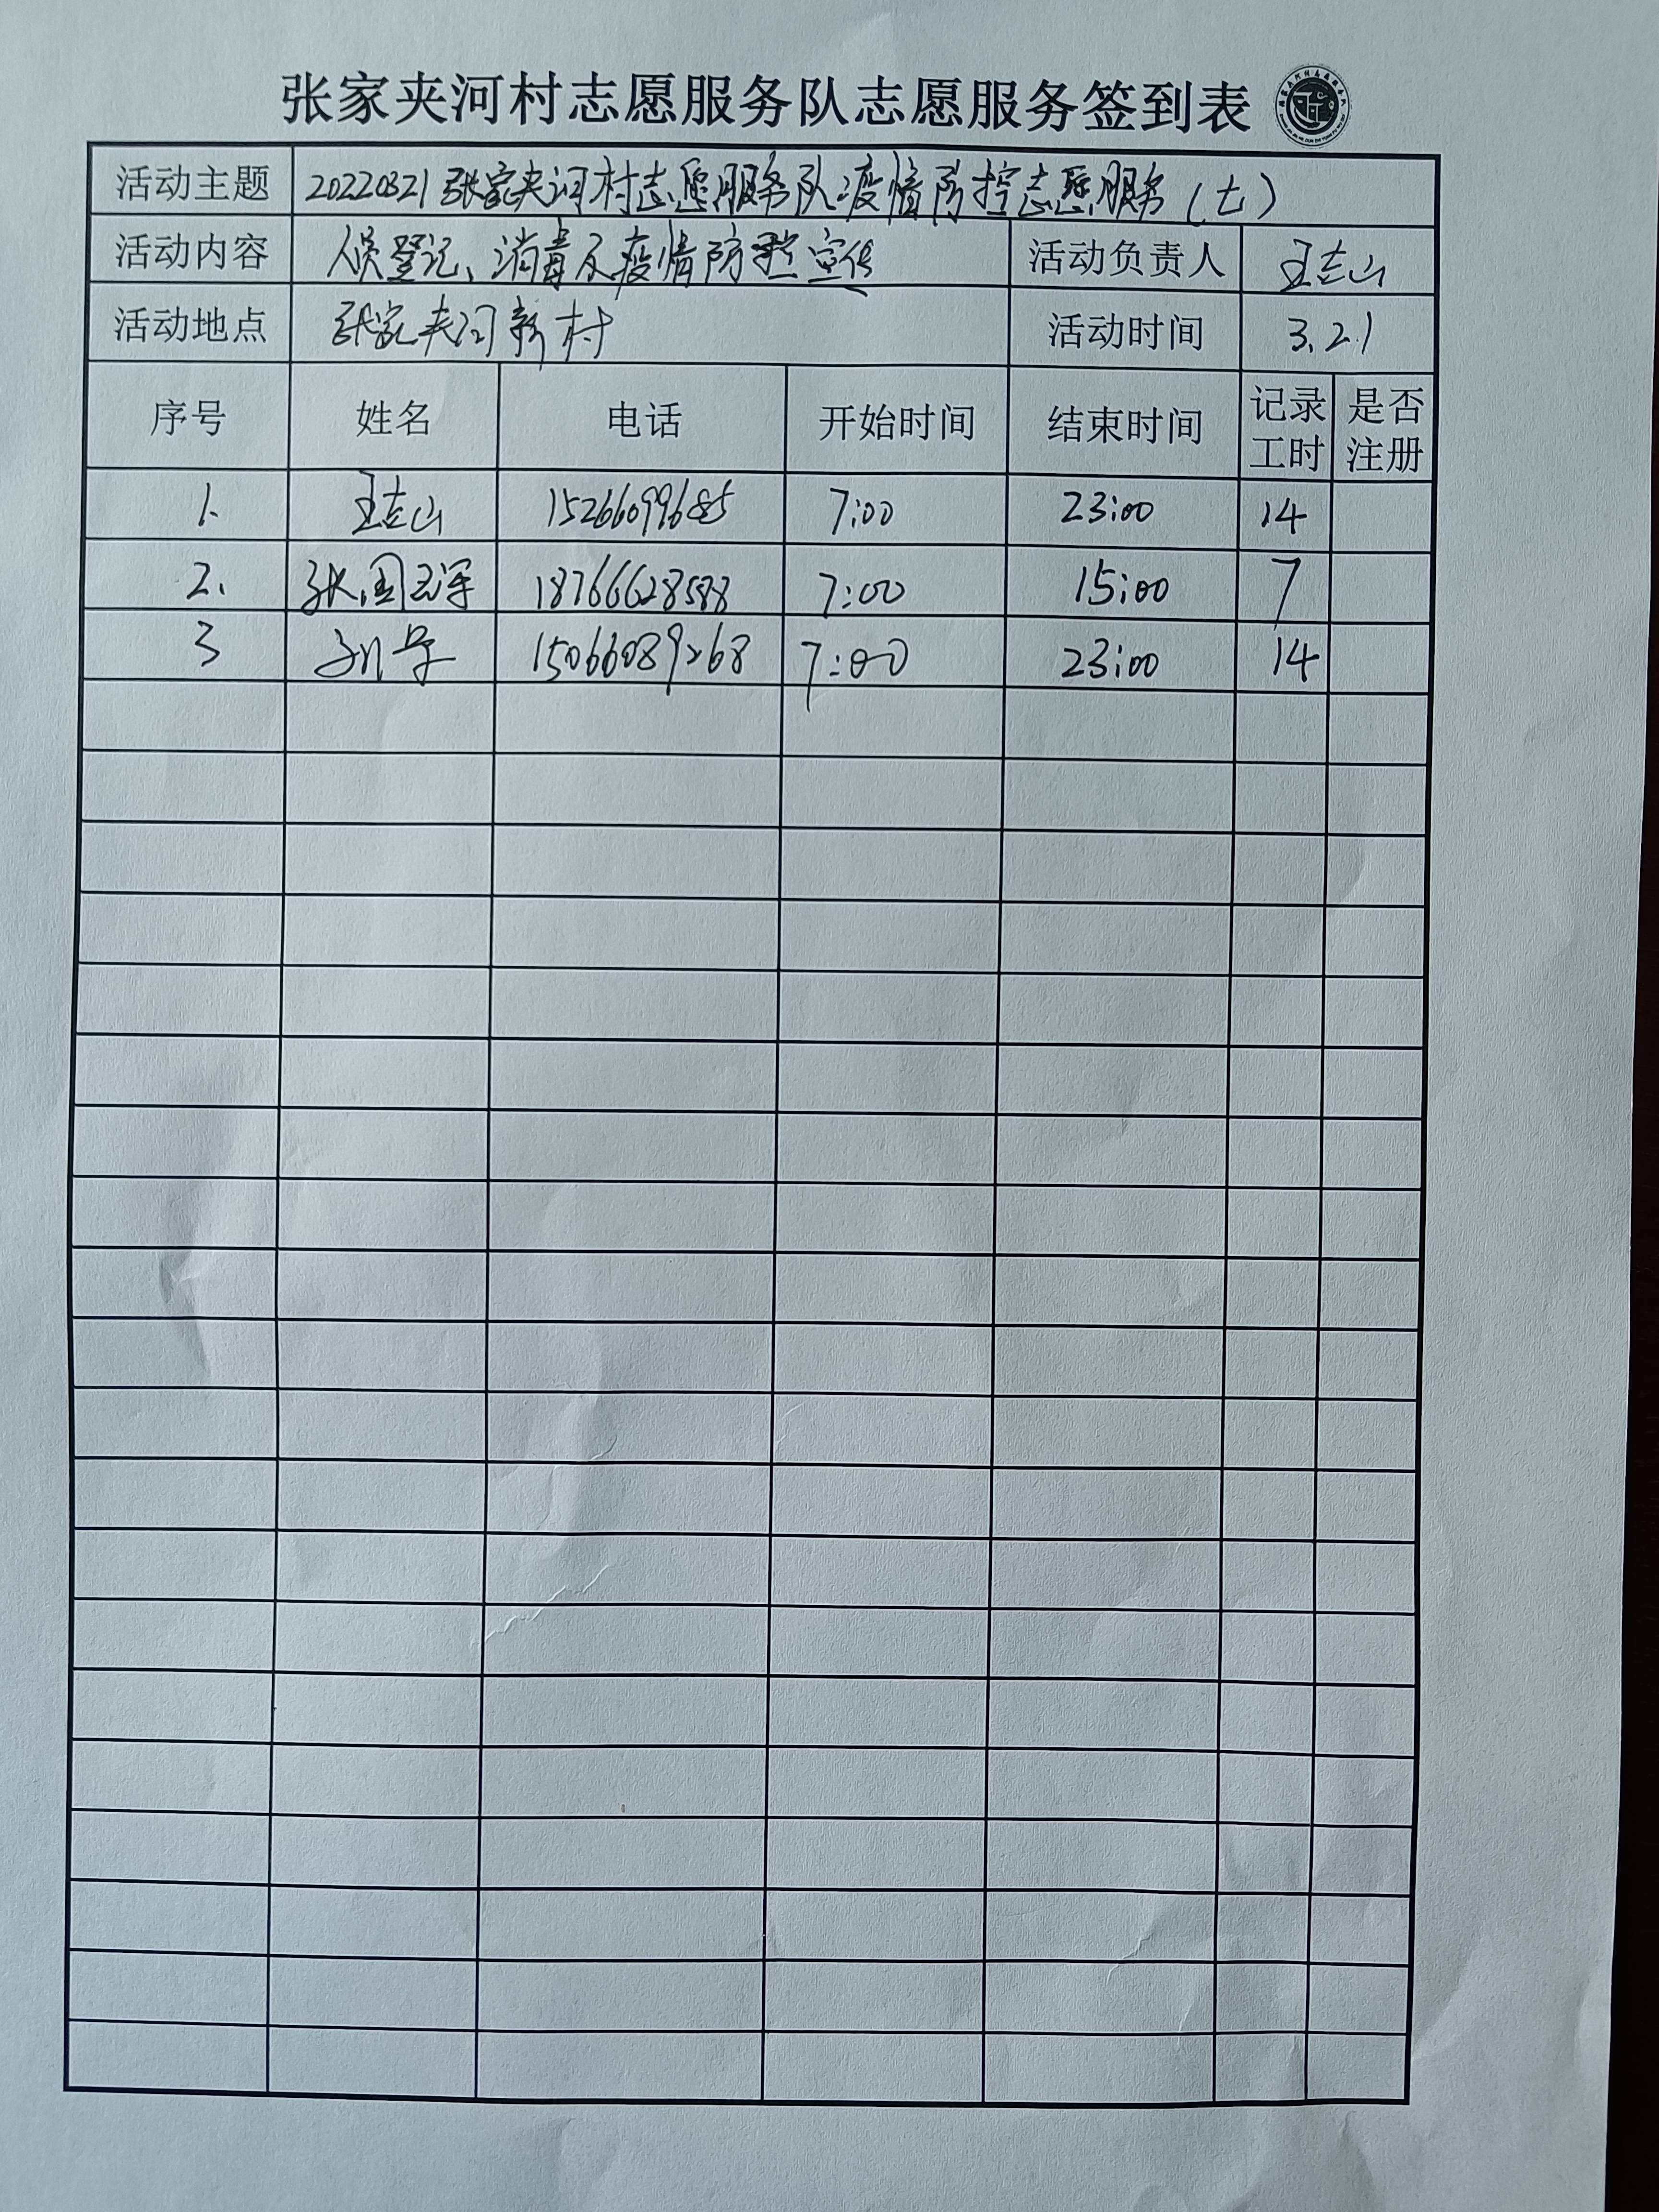 张家夹河村志愿服务队志愿服务签到表
活动主题 20220321张家夹河村志愿服务队疫情防控志愿服务(七)
活动内容 人员登记、消毒及疫情防控宣传 活动负责人 王吉山
活动地点 张家夹河新村 活动时间 3.21
序号 姓名 电话 开始时间 结束时间 记录工时 是否注册
1. 王吉山 15266099685 7:00 23:00 14
2. 张国军 18766628588 7:00 15:00 7
3 15066089268 7:00 23:00 14